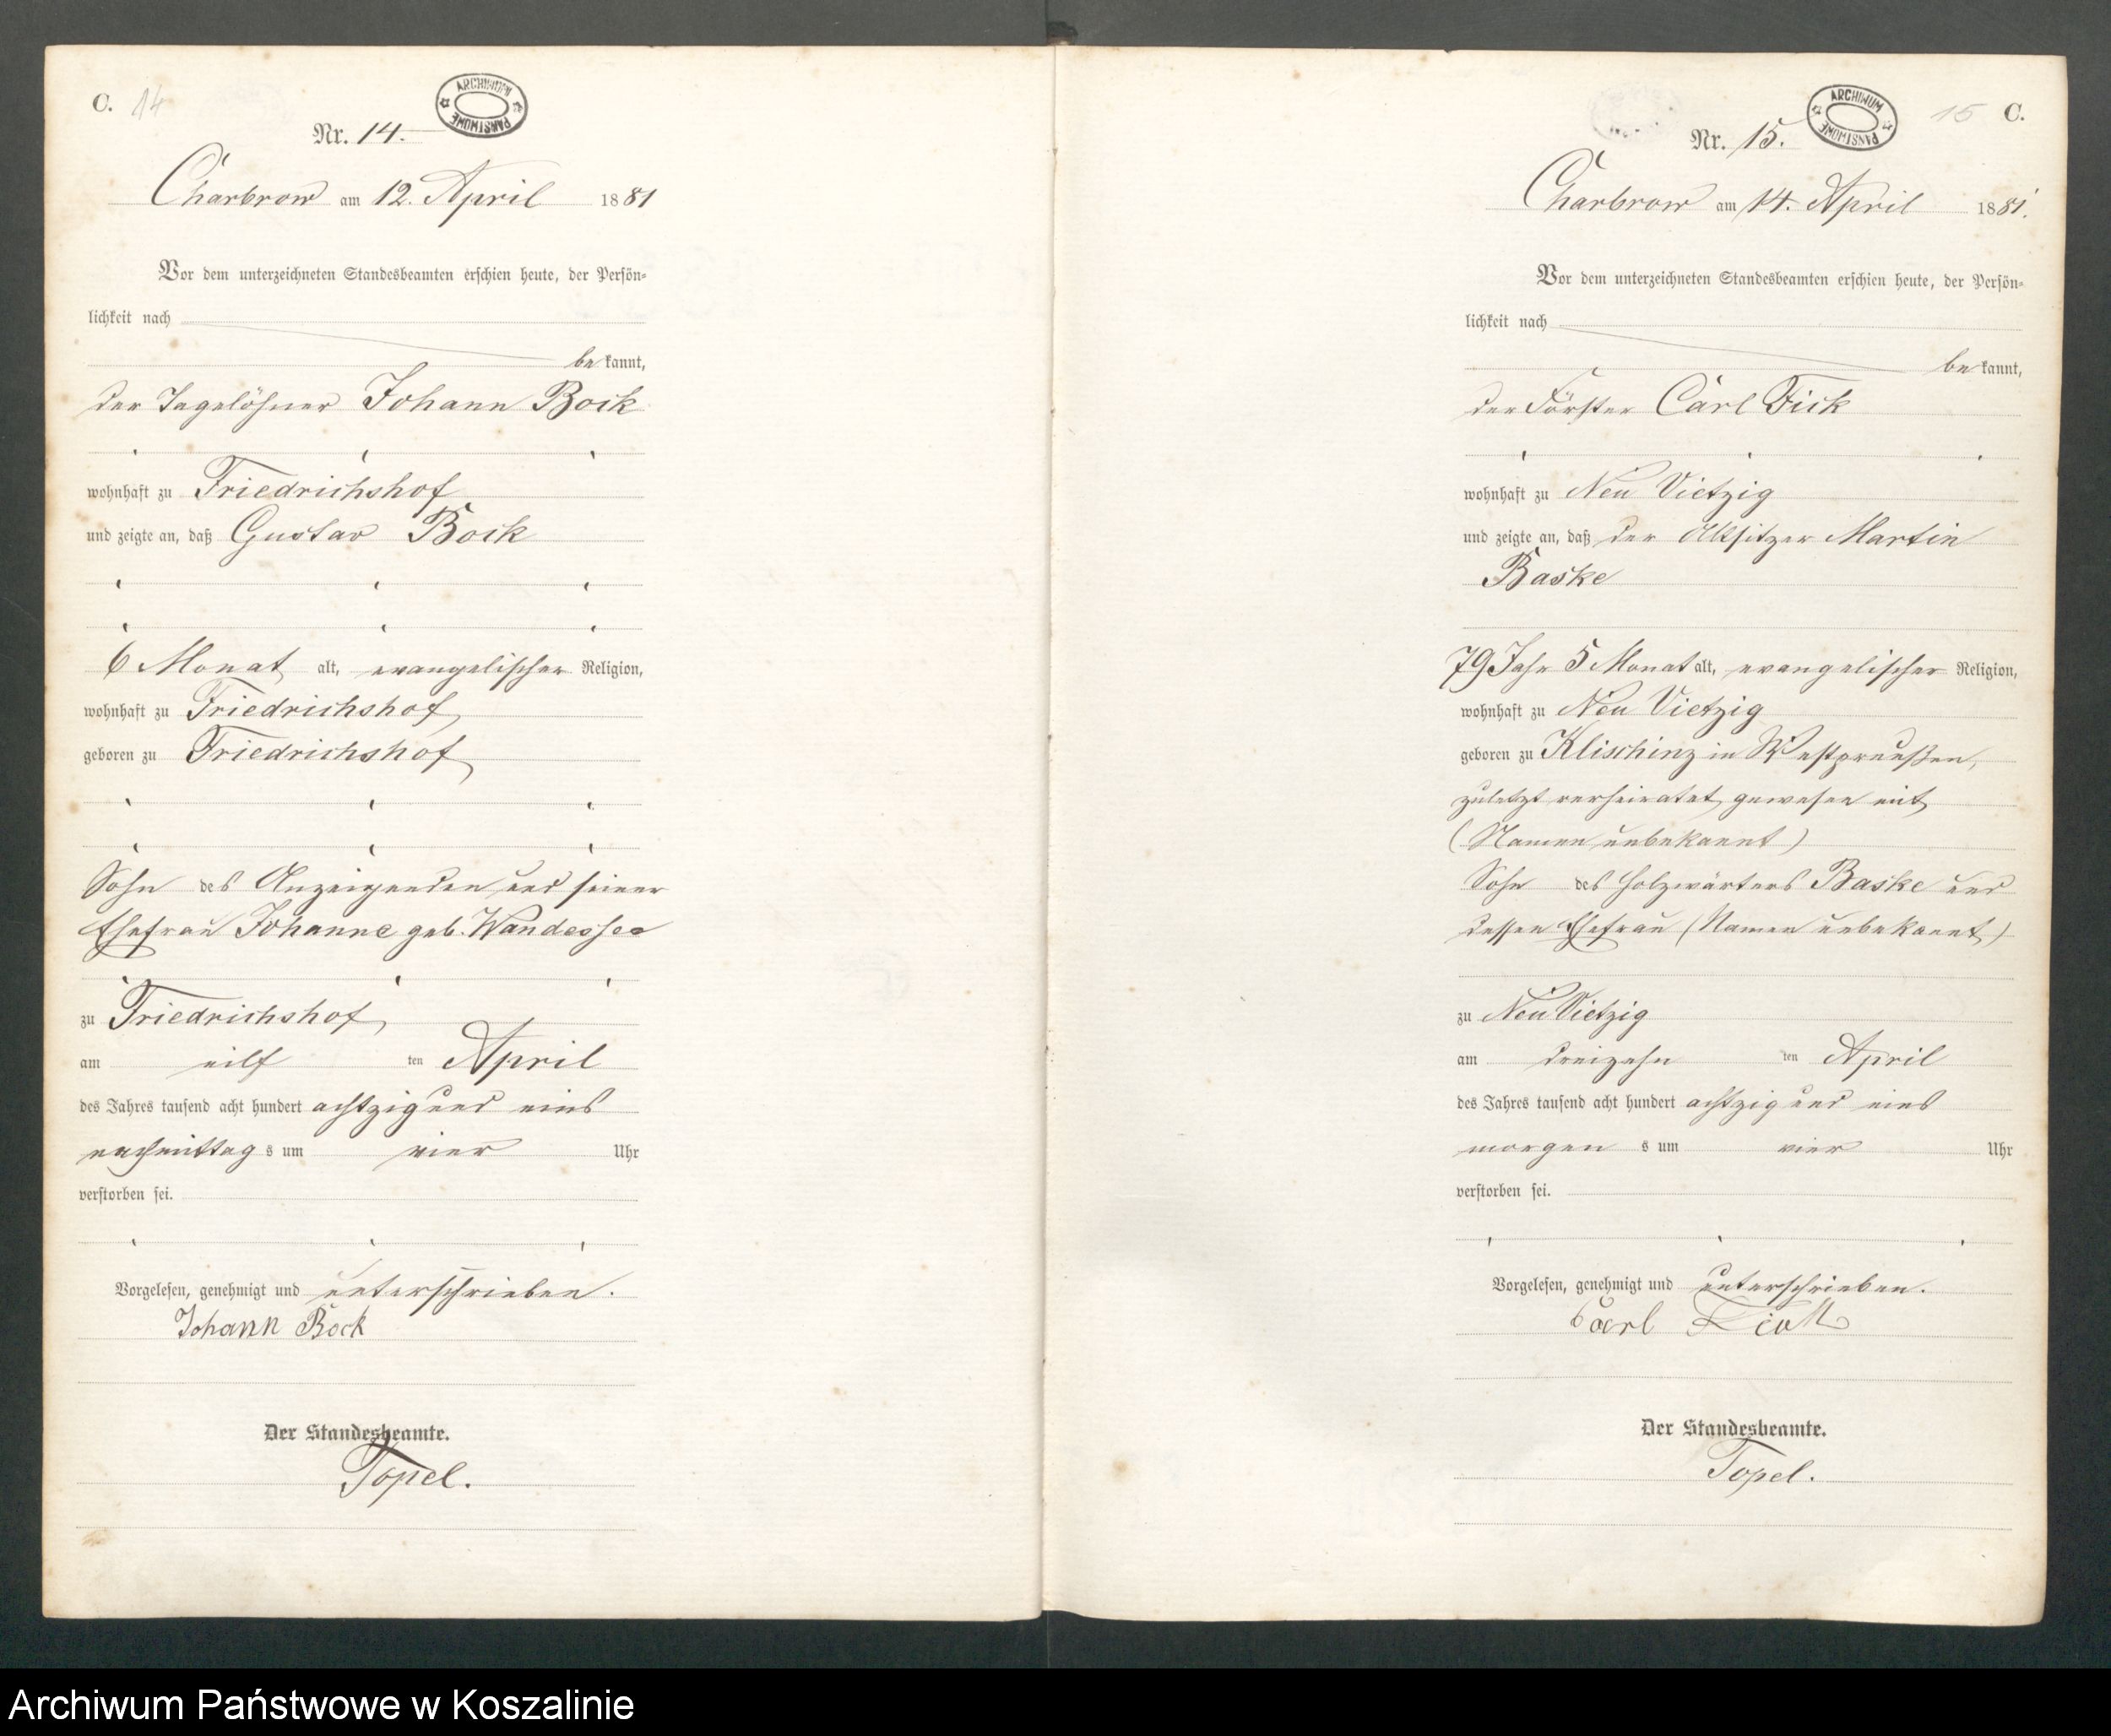 C. 14
ARCHIWUM PAŃSTWOWE
Nr. 14.
Charbrow am 12. April 1881
Vor dem unterzeichneten Standesbeamten erschien heute, der Persön-
lichkeit nach
be kannt,
der Tagelöhner Johann Bock
wohnhaft zu Friedrichshof
und zeigte an, daß Gustav Bock
6 Monat alt, evangelischer Religion,
wohnhaft zu Friedrichshof,
geboren zu Friedrichshof,
Sohn des Anzeigenden und seiner
Ehefrau Johanne geb.
zu Friedrichshof,
am eilf ten April
des Jahres tausend acht hundert achtzig und eins
nachmittag s um vier Uhr
verstorben sei.
Vorgelesen, genehmigt und unterschrieben.
Johann Bock
Der Standesbeamte.
Topel.
15 C.
ARCHIWUM PAŃSTWOWE
Nr. 15.
Charbrow am 14. April 1881.
Vor dem unterzeichneten Standesbeamten erschien heute, der Persön-
lichkeit nach
be kannt,
der Förster Carl Fick
wohnhaft zu Neu Vietzig
und zeigte an, daß der Altsitzer Martin
Baske
79 Jahr 5 Monat alt, evangelischer Religion,
wohnhaft zu Neu Vietzig
geboren zu Klischinz in Westpreußen,
zuletzt verheiratet gewesen mit
(Namen unbekannt)
Sohn des Holzwärters Baske und
dessen Ehefrau (Namen unbekannt)
zu Neu Vietzig
am dreizehn ten April
des Jahres tausend acht hundert achtzig und eins
morgen s um vier Uhr
verstorben sei.
Vorgelesen, genehmigt und unterschrieben.
Carl Fick
Der Standesbeamte.
Topel.
Archiwum Państwowe w Koszalinie